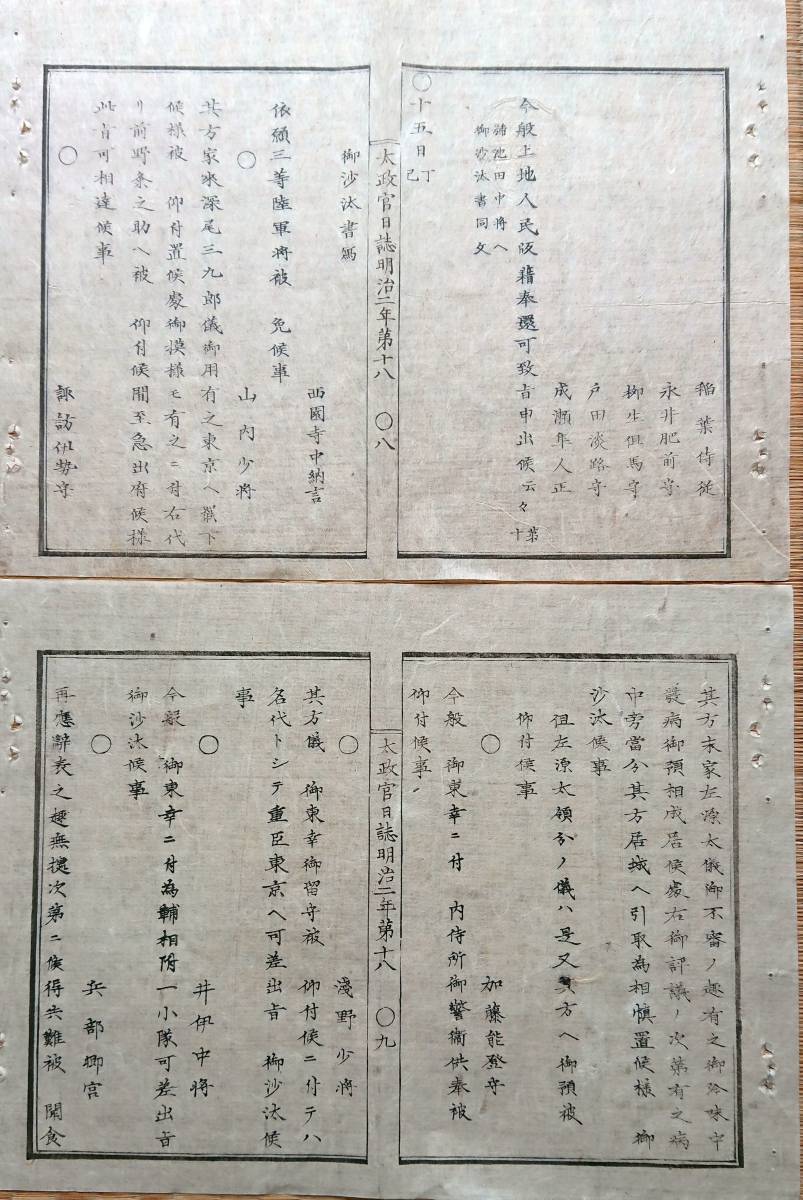 稲葉侍従
永井肥前守
柳生但馬守
戸田淡路守
成瀬隼人正
今般土地人民版籍奉還可致旨申出候云々 第十
御沙汰書同文
〇十五日丁巳
太政官日誌明治二年第十八 〇八
御沙汰書写
西園寺中納言
依願三等陸軍将被 免候事
〇
山内少将
其方家来深尾三九郎儀御用有之東京へ罷下
候様被 仰付置候処御模様モ有之ニ付右代
リ前野条之助ヘ被 仰付候間至急出府候様
此旨可相達候事
〇
諏訪伊勢守
其方末家左源太儀御不審ノ趣有之御吟味中
発病御預相成居候処右御評議ノ次第有之病
中旁當分其方居城ヘ引取為相慎置候様 御
沙汰候事
但左源太領分ノ儀ハ是又其方ヘ御預被
仰付候事
〇
加藤能登守
今般 御東幸ニ付 内侍所御警衛供奉被
仰付候事
太政官日誌明治二年第十八 〇九
〇
浅野少将
其方儀 御東幸御留守被 仰付候ニ付テハ
名代トシテ重臣東京ヘ可差出旨 御沙汰候
事
〇
井伊中将
今般 御東幸ニ付為輔相附一小隊可差出旨
御沙汰候事
〇
兵部卿宮
再應辭表之趣無據次第ニ候得共難被 聞食